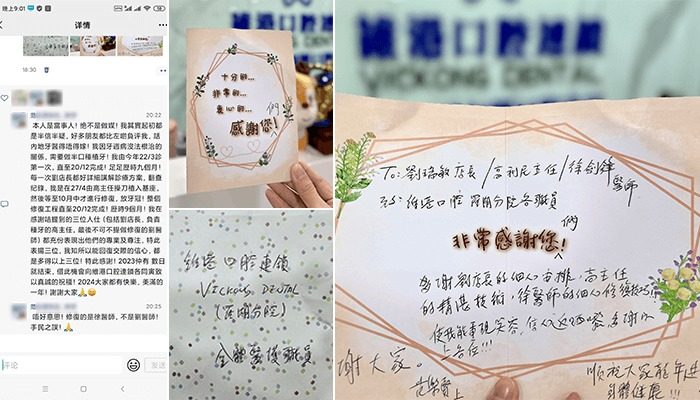 晚上9:01
详情
18:30
20:22
本人是當事人! 絕不是做媒! 我其實起初都
是半信半疑, 好多朋友都比左啲負评我, 話
內地牙醫得唔得嫁! 我因牙週病沒法根治的
關係, 需要做半口種植牙! 我由今年22/3診
第一次, 直至20/12完成! 足足歷時九個月!
每一次劉店長都好詳細講解診療方案, 翻查
紀錄, 我是在27/4由高主任操刀植入基座,
然後等至10月中才進行修復, 放牙冠! 整個
修復工程直至20/12完成! 歷時9個月! 我在
感謝咭鍾到的三位人仕 (包括劉店長, 負責
種牙的高主任, 最後不可不提做修復的劉醫
師) 都充份表現出他們的專業及專注, 特此
表揚三位, 我知所以能回復交際的信心, 都
是多得以上三位! 特此感謝! 2023仲有 數日
就結束, 借此機會向維港口腔達鎖各同寅致
以真誠的祝禱! 2024大家都有快樂, 美滿的
一年! 謝謝大家!🙏
20:22
唔好意思! 修復的是徐醫師, 不是劉醫師!
手民之誤! 🙏
评论
发送
十分的...
非常的...
衷心的...
感謝您!
們
維港口腔連鎖
Vickong Dental
(羅湖分院)
全體醫護職員
維港口腔連鎖
VICKONG DENTAL
To: 劉瑞敏店長/高利民主任/徐劍鋒醫師
維港口腔 羅湖分院各職員
們
非常感謝您!
多謝劉店長的細心安排, 高主任
的精湛技術, 徐醫師的細心修復技巧!!
使我能重現笑容,
各位!!!
謝大家。
順祝大家龍年進
身體健康!!!